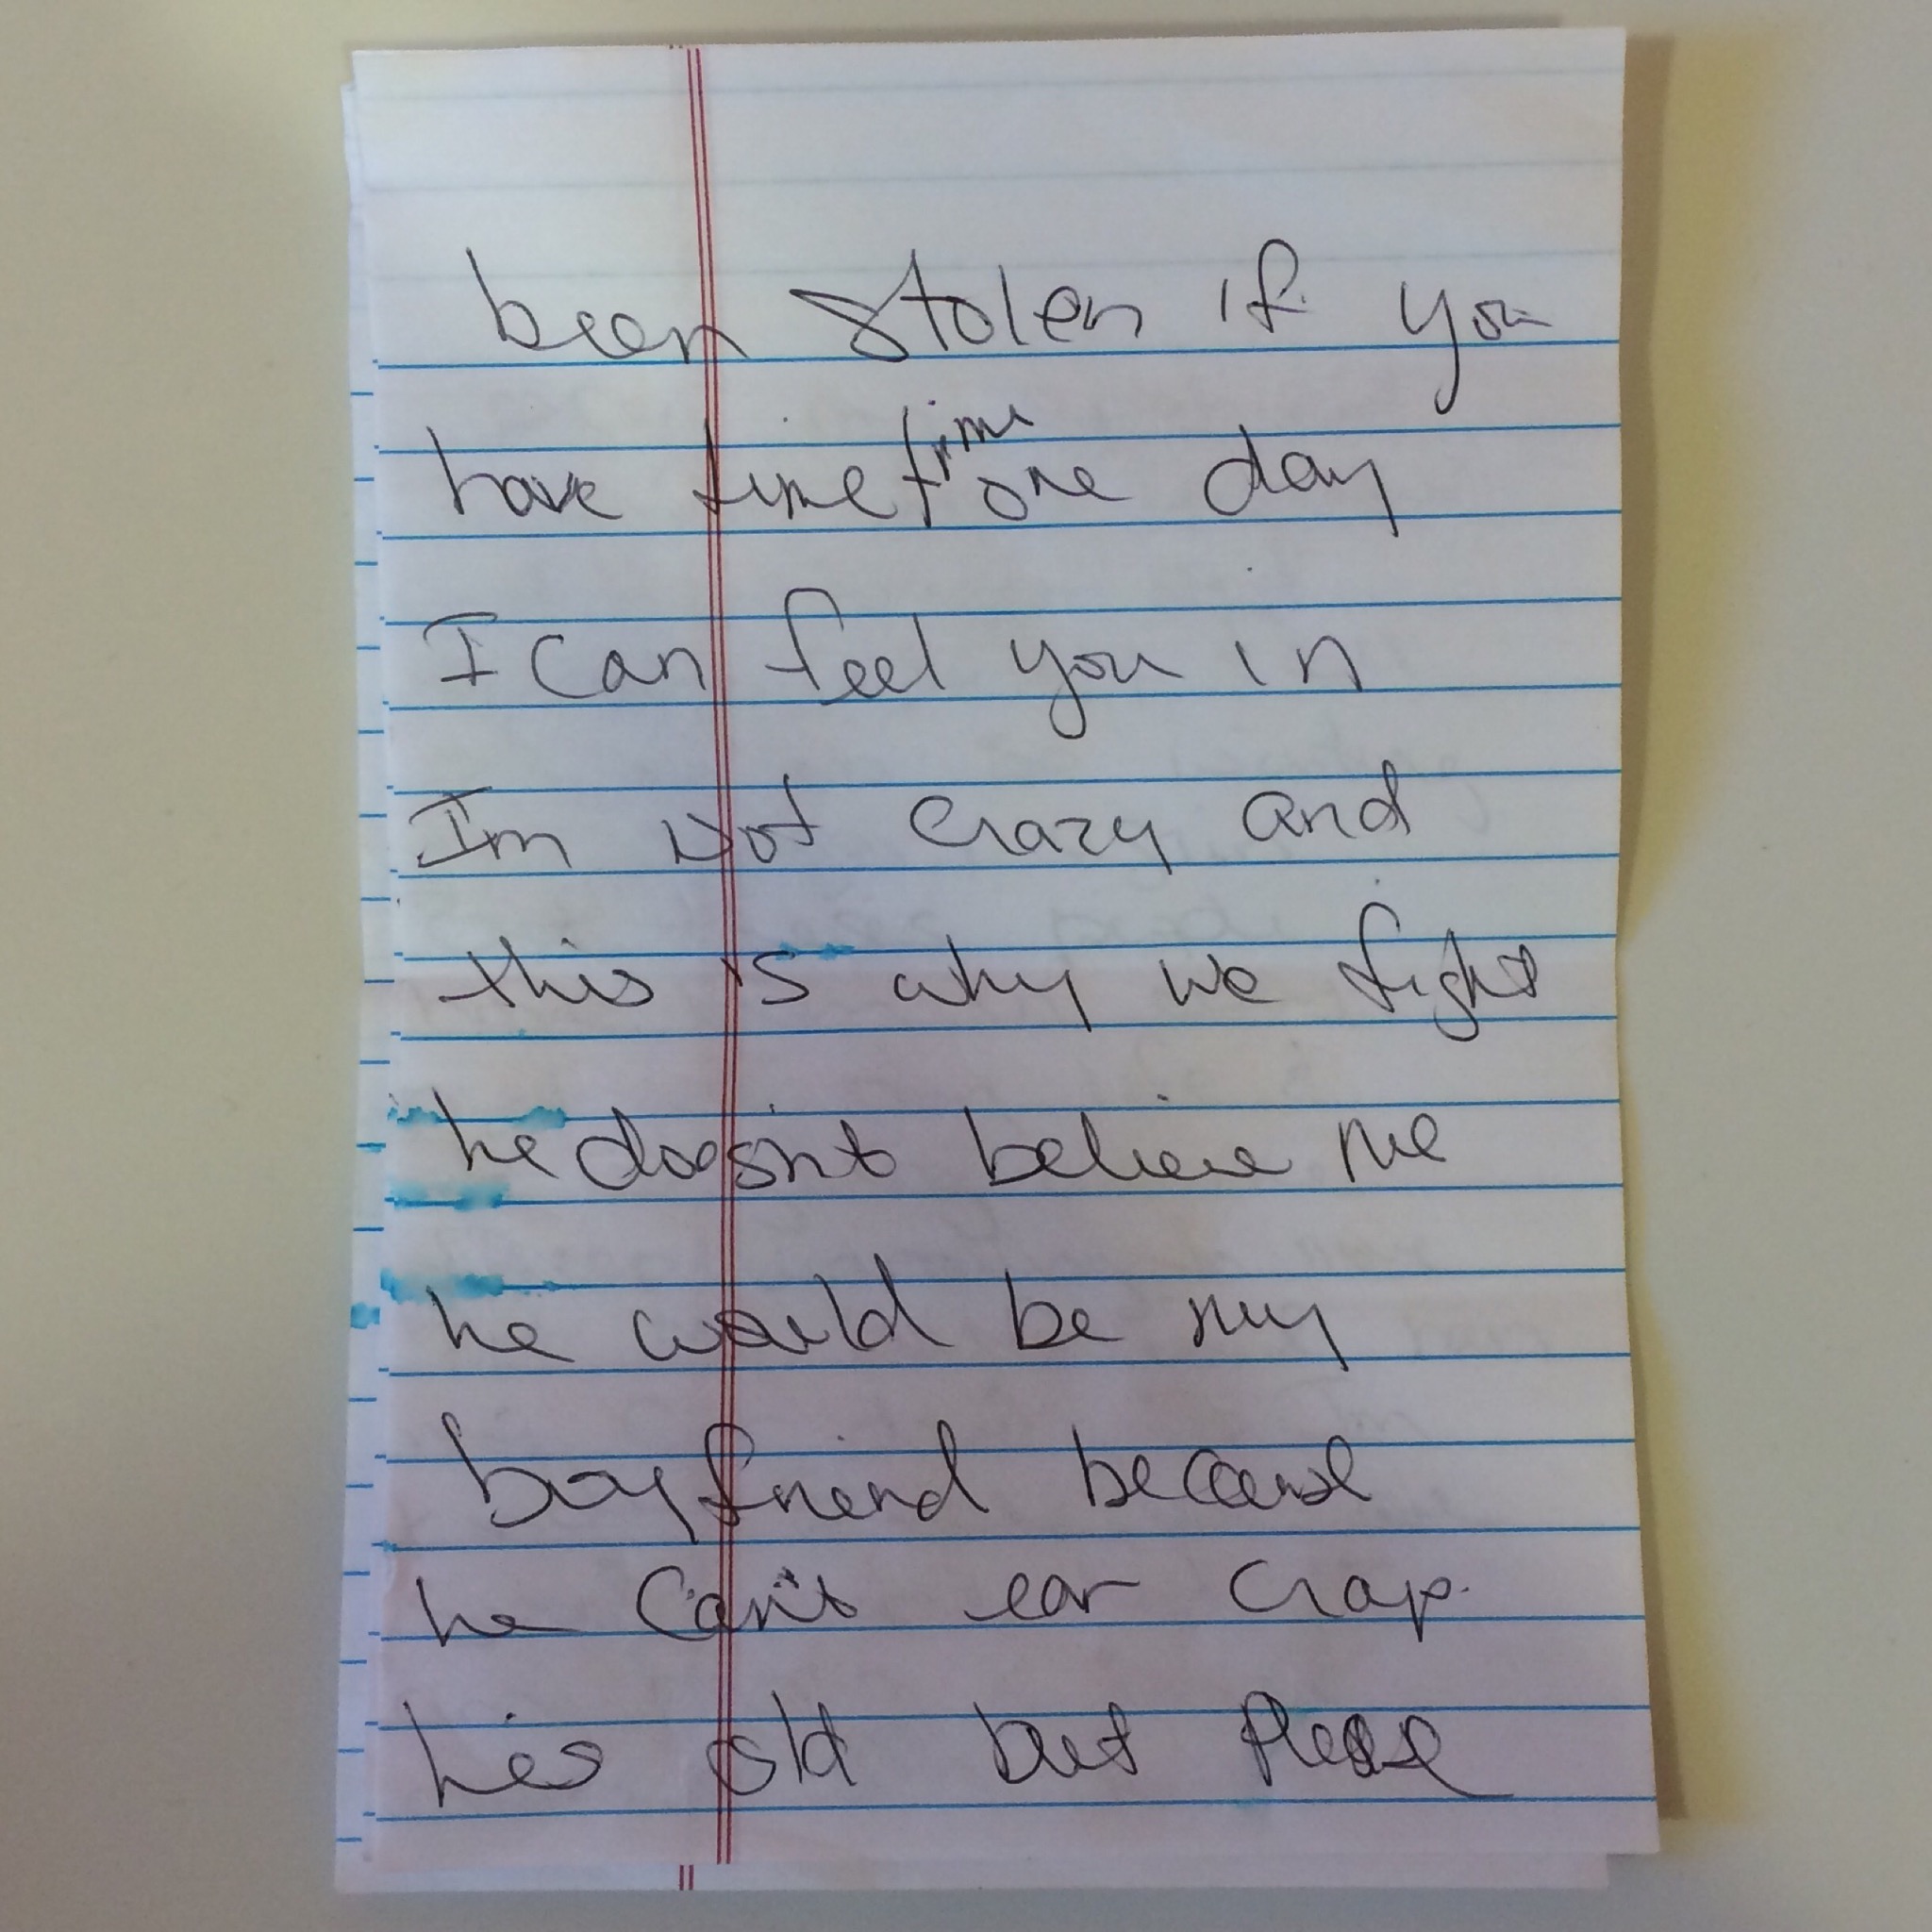 been stolen if you
have time time one day
I can feel you in
Im not crazy and
this is why we fight
he doesnt believe me
he would be my
boyfriend because
he can't ear crap.
hies old but Please